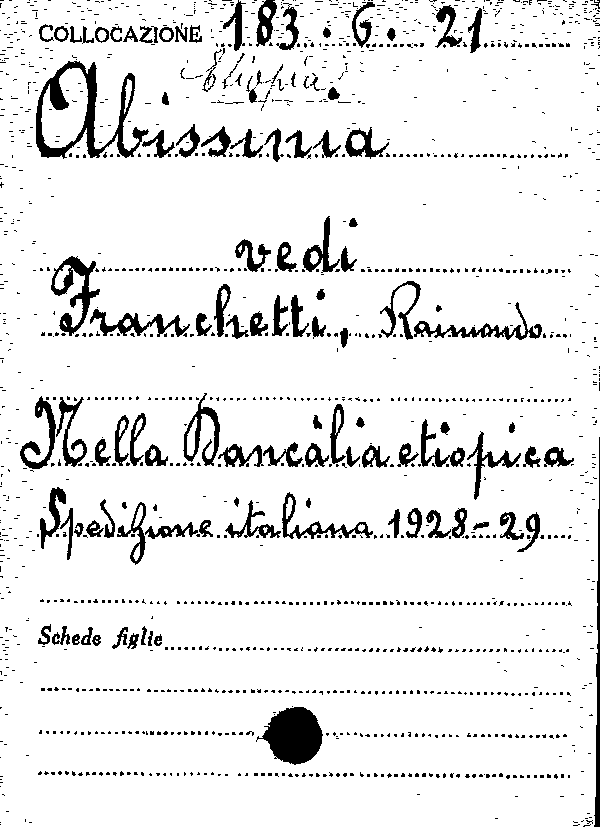 COLLOCAZIONE 183.6.21
Etiopia
Abissinia
vedi
Franchetti, Raimondo
Nella Dancàlia etiopica
Spedizione italiana 1928-29
Schede figlie